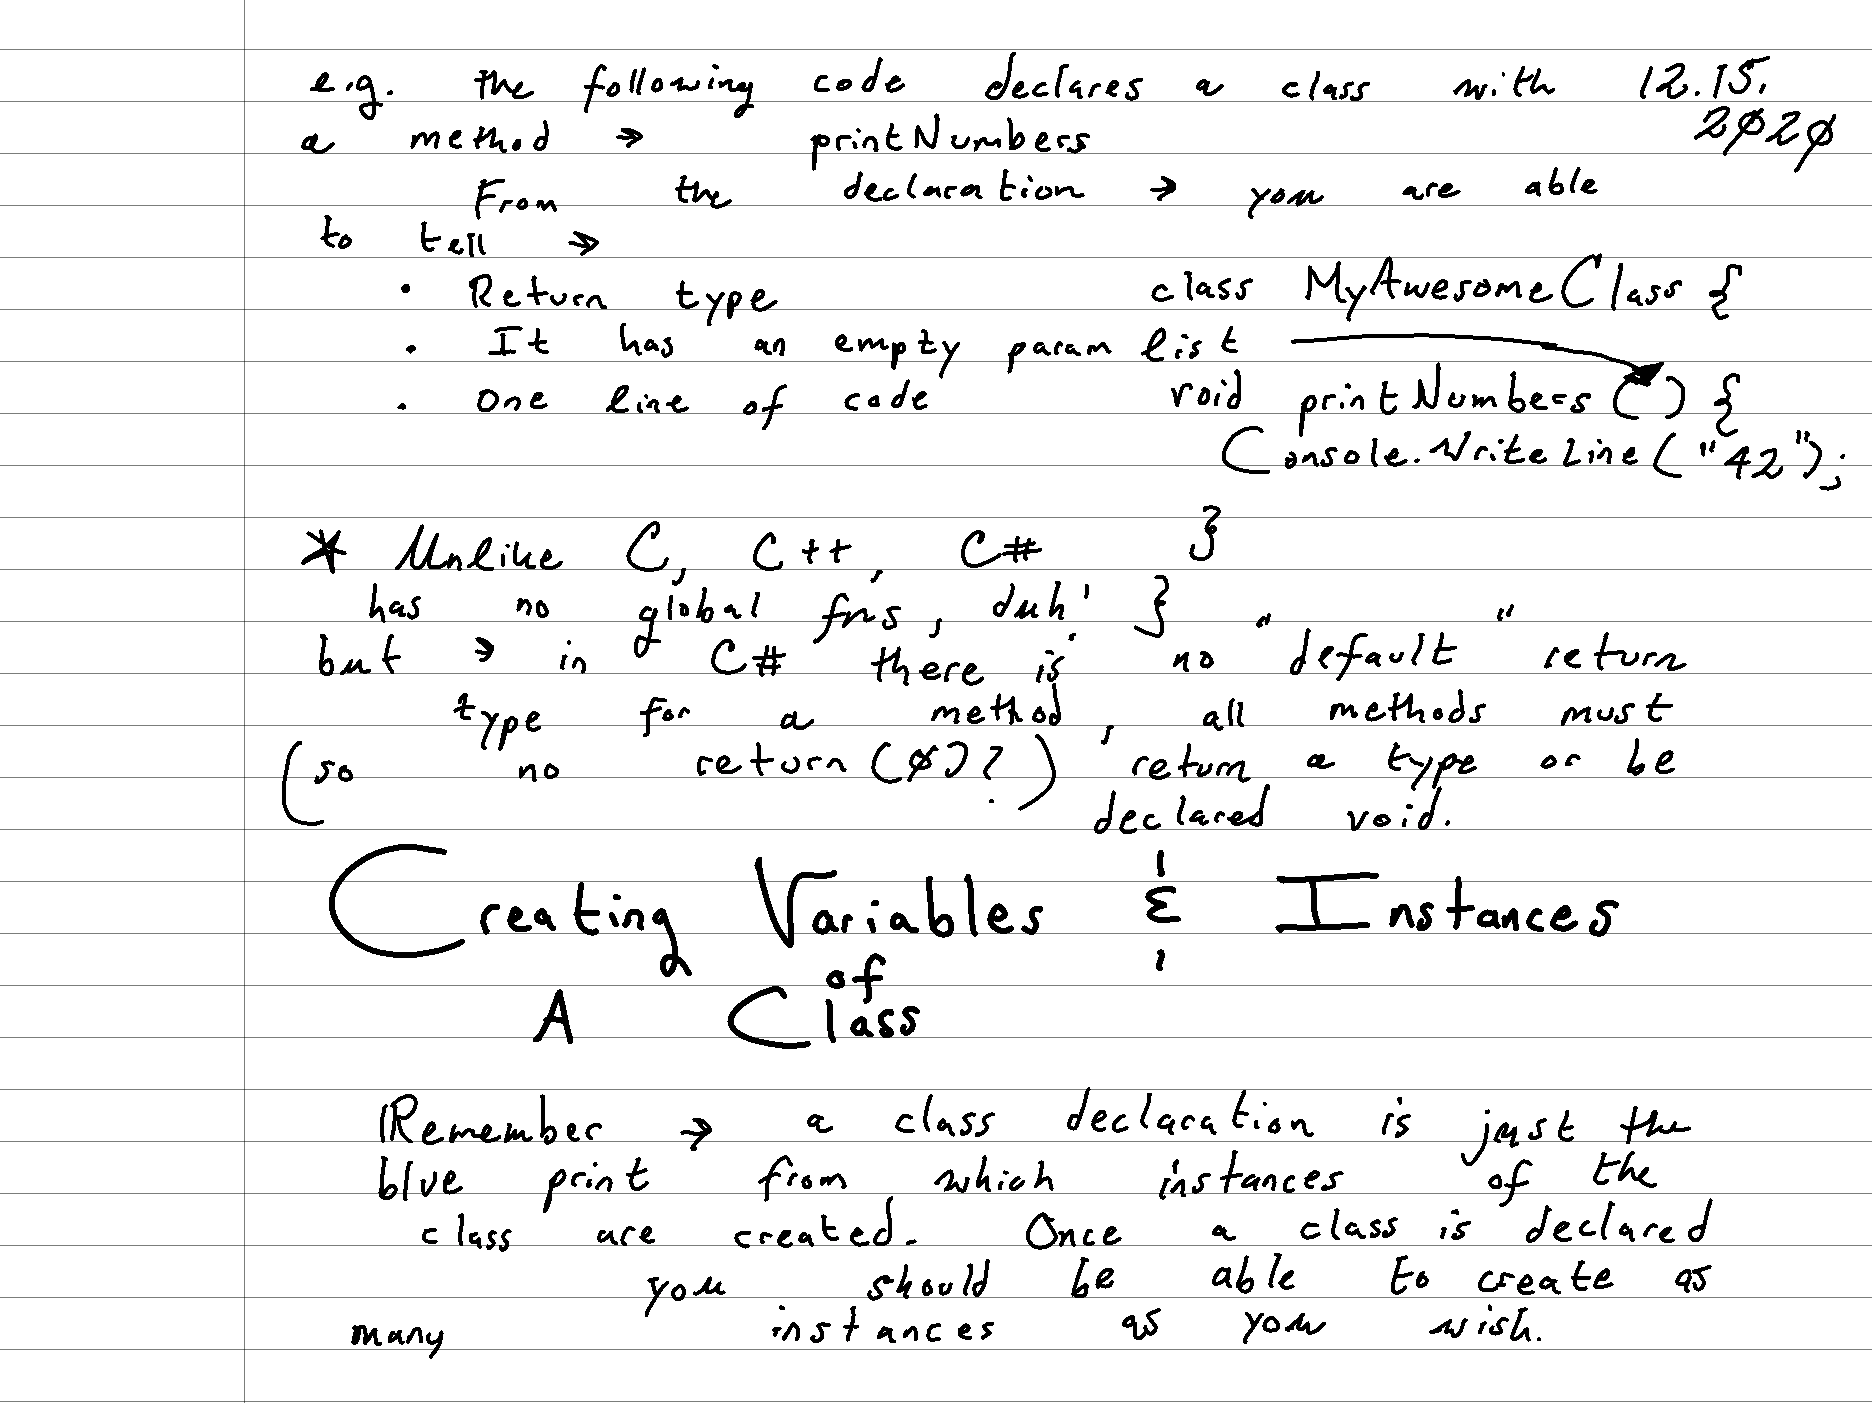 e.g. the following code declares a class with 12.15.
2020
a method → printNumbers
From the declaration → you are able
to tell →
• Return type class MyAwesomeClass {
• It has an empty param list
• One line of code void printNumbers() {
Console.WriteLine("42");
* Unlike C, C++, C# }
has no global fns, duh! }
but → in C# there is no "default" return
type for a method, all methods must
(so no return(0)?) return a type or be
declared void.
Creating Variables & Instances
of
A Class
Remember → a class declaration is just the
blue print from which instances of the
class are created. Once a class is declared
you should be able to create as
many instances as you wish.